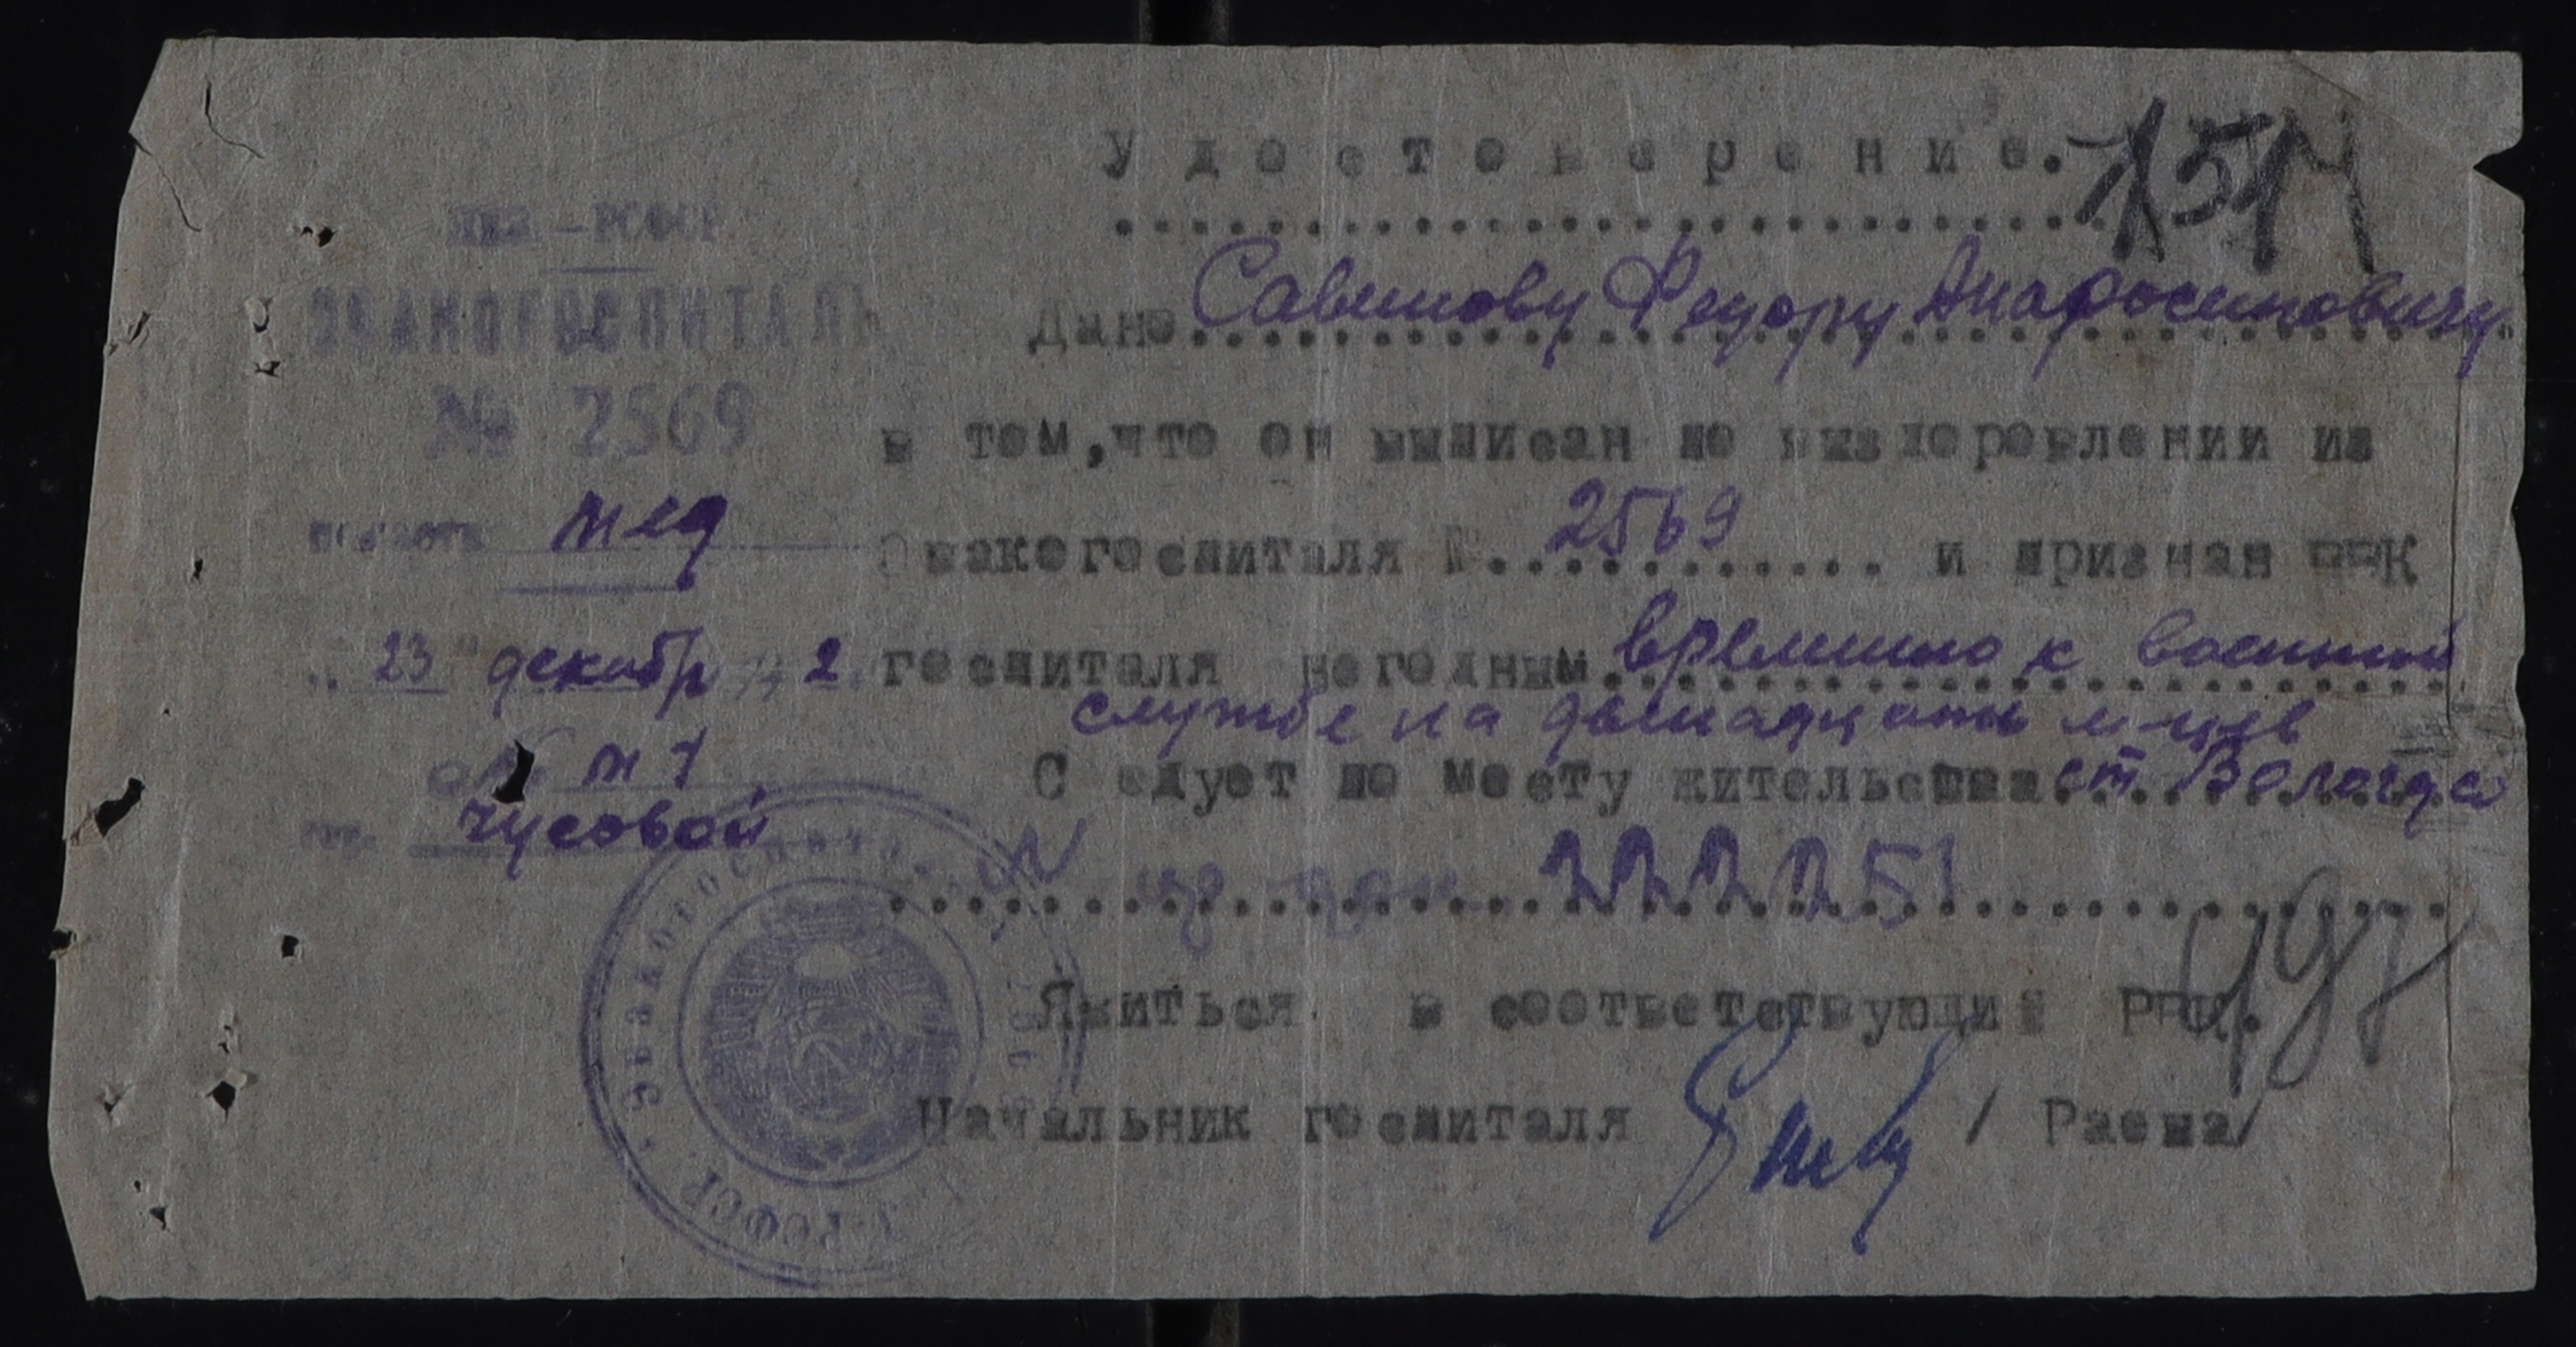 Удостоверение.
НКЗ — РСФСР
ЭВАКОГОСПИТАЛЬ
№ 2569
часть мед
"23" декабр 1942
№ м/
гор. Чусовой
Дано Савинову Федору Амфросимовичу
в том, что он выписан по выздоровлении из
Эвакогоспиталя №. 2569 и признан ВВК
госпиталя негодным временно к военной
службе на двенадцать м-цев
Следует по месту жительства ст. Вологда
222251
Явиться в соответствующий РВК.
Начальник госпиталя / Раева/
ЭВАКОГОСПИТАЛЬ РСФСР